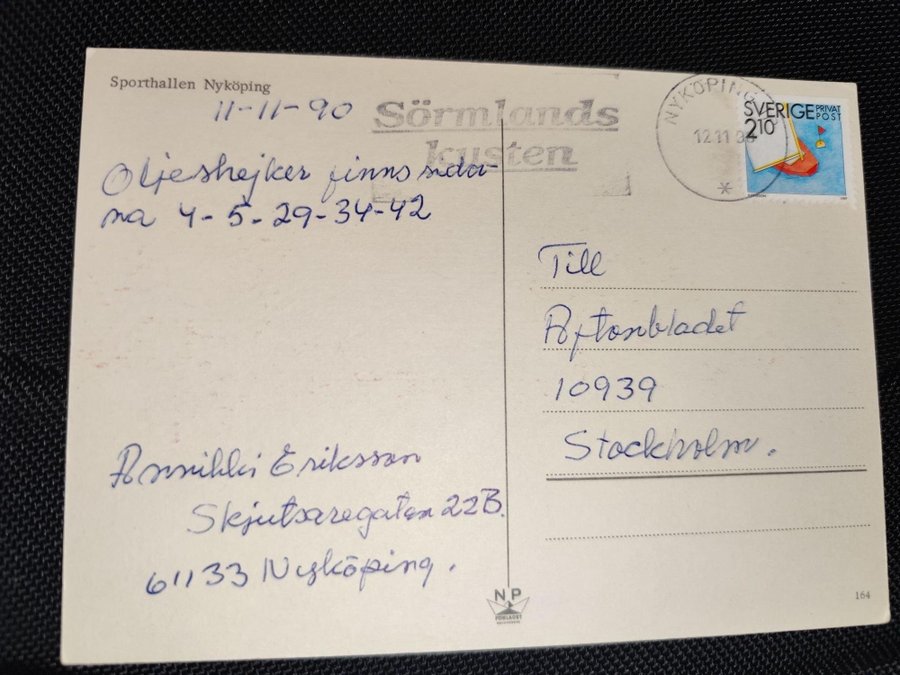 Sporthallen Nyköping
11-11-90
Oljeshejker finns sido-
na 4-5-29-34-42
Annikki Eriksson
Skjutsaregatan 22B.
61133 Nyköping.
Sörmlands
kusten
NYKÖPING
12.11.90
SVERIGE PRIVAT
POST
210
Till
Aftonbladet
10939
Stockholm.
NP
FÖRLAGET
164